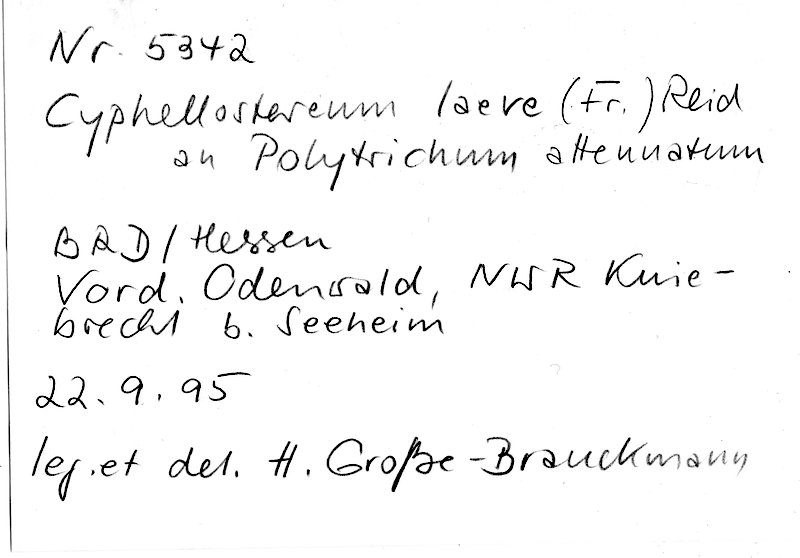 Nr. 5342
Cyphellostereum laeve (Fr.) Reid
an Polytrichum attenuatum
BRD/Hessen
Vord. Odenwald, NWR Knie-
brecht b. Seeheim
22.9.95
leg. et det. H. Große-Brauckmann